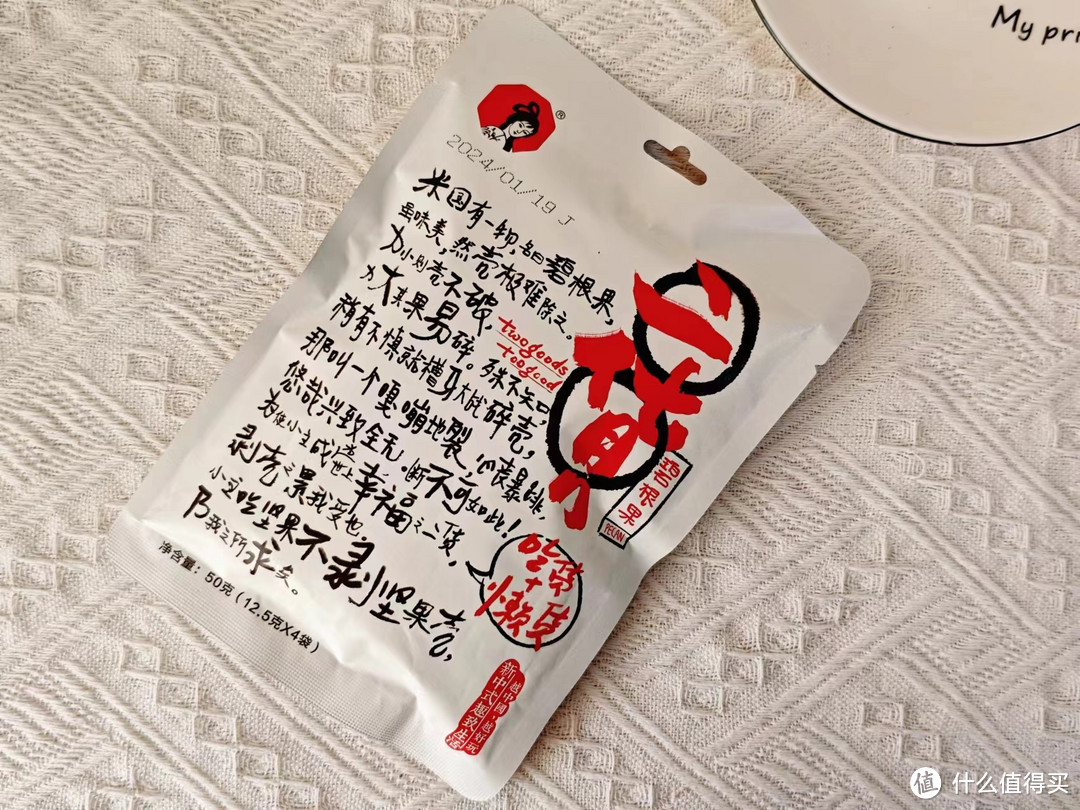 My pri
®
2024/01/19 J
米国有一卵，名曰碧根果，
虽味美，然壳极难除之。
力小则壳不破，
力大其果易碎。殊不知，
稍有不慎就糟大成碎壳，
那叫一个嘎嘣地裂，心表暴跳，
悠哉兴致全无。断不可如此！
为使小主成为世上幸福之二货，
剥壳之累我受也，
小主吃坚果不剥坚果壳，
乃我之所求矣。
twogoods
toogood
二货
碧根果
PECAN
吃货
+
懒货
净含量：50克（12.5克X4袋）
越中國，越好玩
新中式趣致生活
值 什么值得买